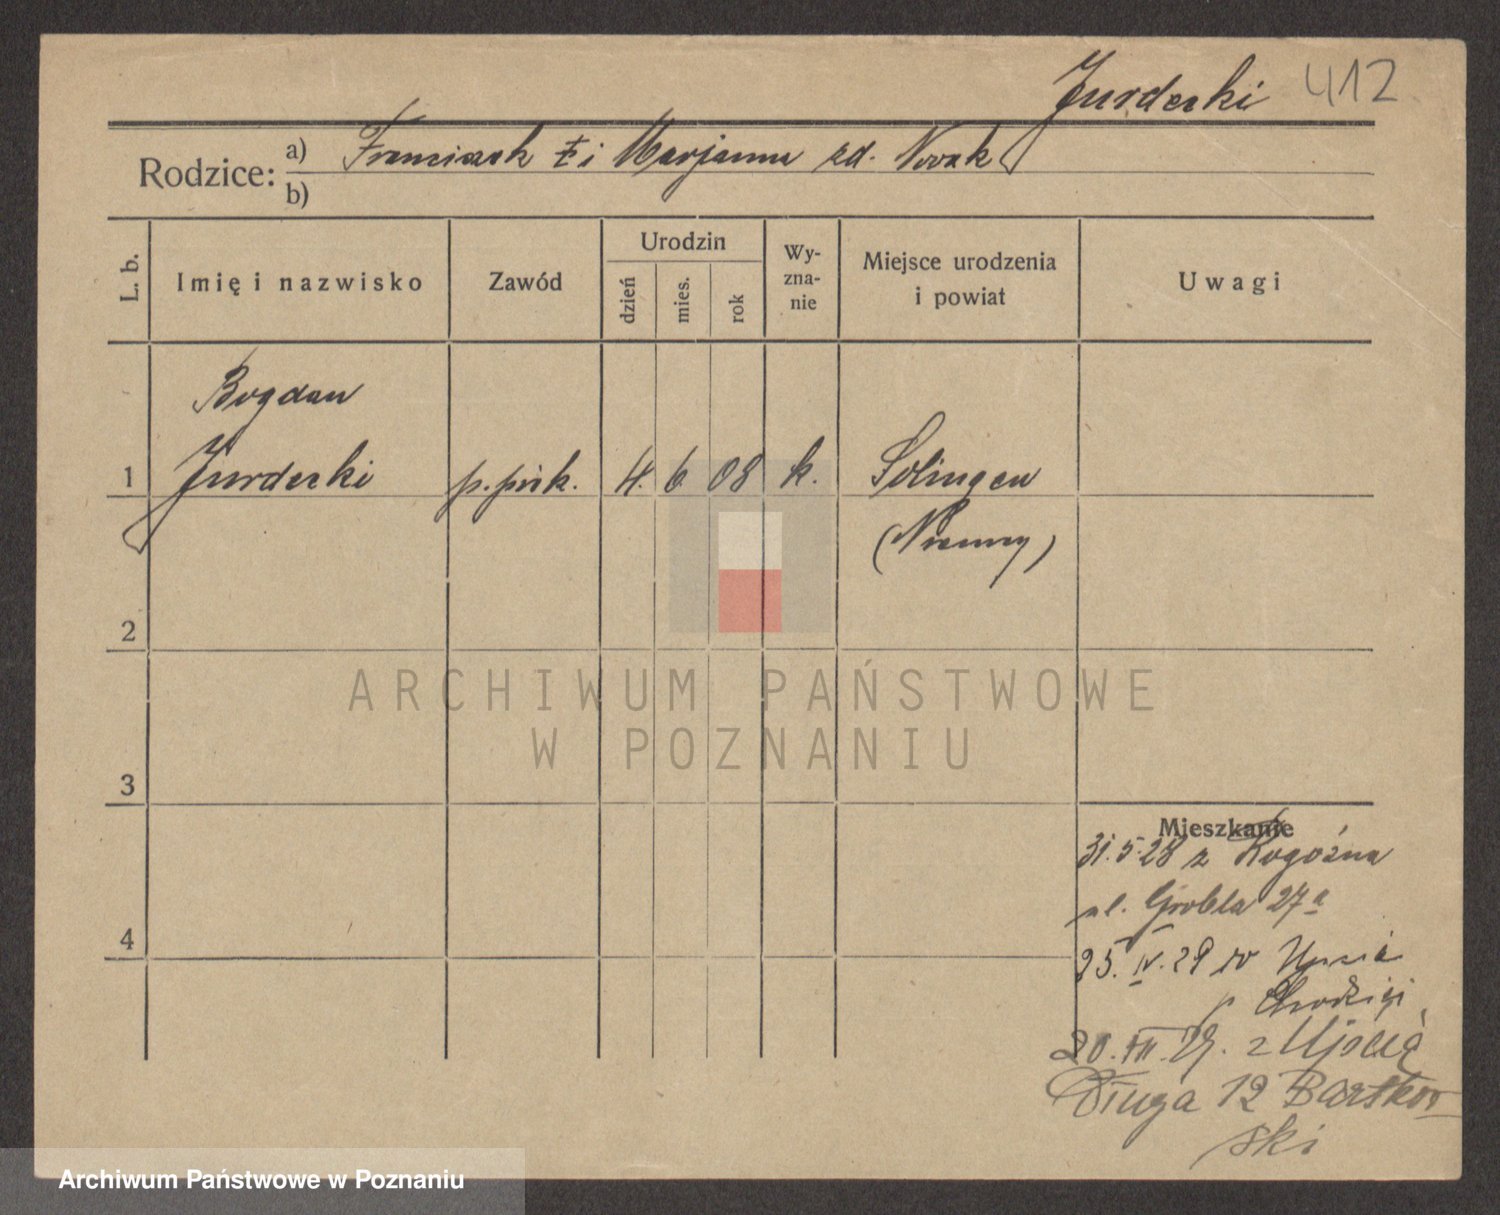 Jurdecki 412
Rodzice: a) Franciszek i Marjanna zd. Nowak
b)
L. b. Imię i nazwisko Zawód Urodzin dzień mies. rok Wyzna-nie Miejsce urodzenia i powiat Uwagi
Bogdan
1 Jurdecki p. piek. 4. 6 08 k. Solingen
(Niemcy)
2
ARCHIWUM PAŃSTWOWE
W POZNANIU
3
Mieszkanie
31.5.28 z Rogoźna
ul. Grobla 27a
4
25. IV. 29 do Ujścia
p Chodzież
20. VII. 29. z Ujścia
Długa 12 Bartkow
ski
Archiwum Państwowe w Poznaniu